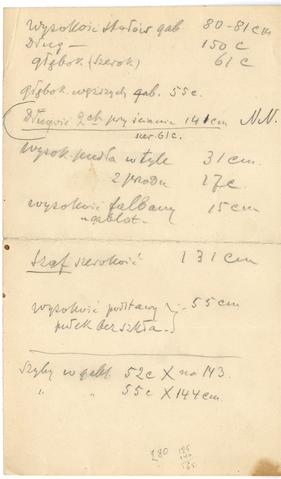 Wysokość stołów gab. 80-81 cm
Dług — 150 c
głębok (szerok) 61 c
głębok węższych gab. 55 c.
Długość 2ch przy ścianie 141 cm N.N.
szer. 61 c.
Wysok pudła w tyle 31 cm.
z przodu 17 c.
wysokość falbany 15 cm
u gablot.
Szaf szerokość 131 cm
wysokość podstawy } 55 cm
półek bez szkła
Szyby w gabl. 52 c X na 143.
" " 55 c X 144 cm.
180